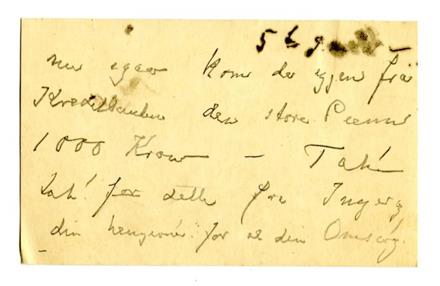 nu igaar kom der igjen fra
Kreditbanken den store Penne
1000 Kron — Tak!
tak! for dette fra Inger og
din hengivne for al din Omsorg.